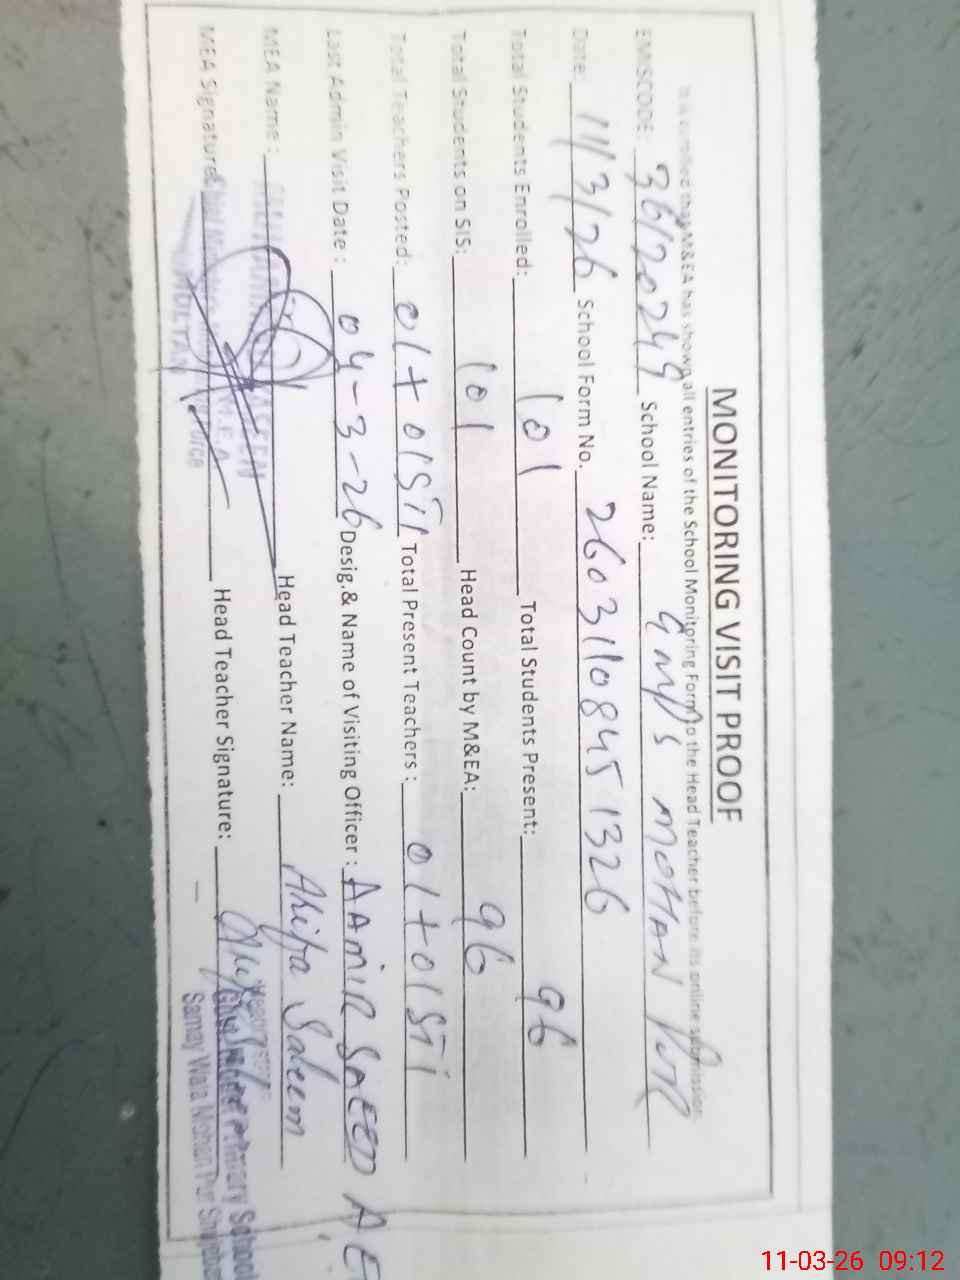 MONITORING VISIT PROOF
It is certified that M&EA has shown all entries of the School Monitoring Form to the Head Teacher before its online submission.
EMISCODE: 36120244 School Name: MOHAN PUR
Date: 11/3/26 School Form No. 26031108451326
Total Students Enrolled: 101 Total Students Present: 96
Total Students on SIS: 101 Head Count by M&EA: 96
Total Teachers Posted: 01+01STI Total Present Teachers: 01+01STI
Last Admin Visit Date: 04-3-26 Desig.& Name of Visiting Officer: AAMIR SAEED AE
MEA Name: Head Teacher Name: Alifa Saleem
MEA Signature: Head Teacher Signature:
M.E.A
MULTAN
Primary School
Samay Wala Mohan Pur
11-03-26 09:12